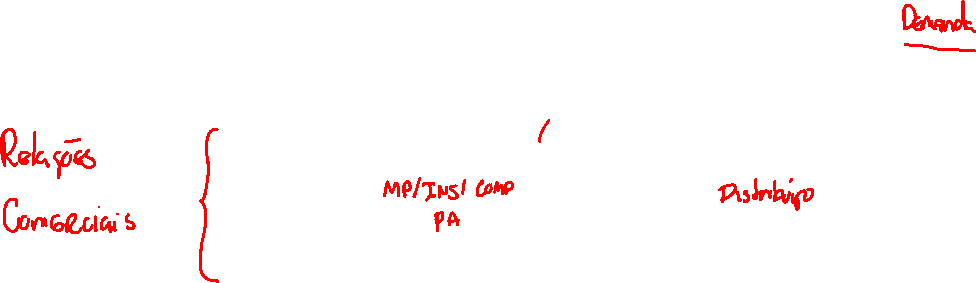 Demanda
Relações
Comerciais
MP/INS/COMP
PA
Distribuição